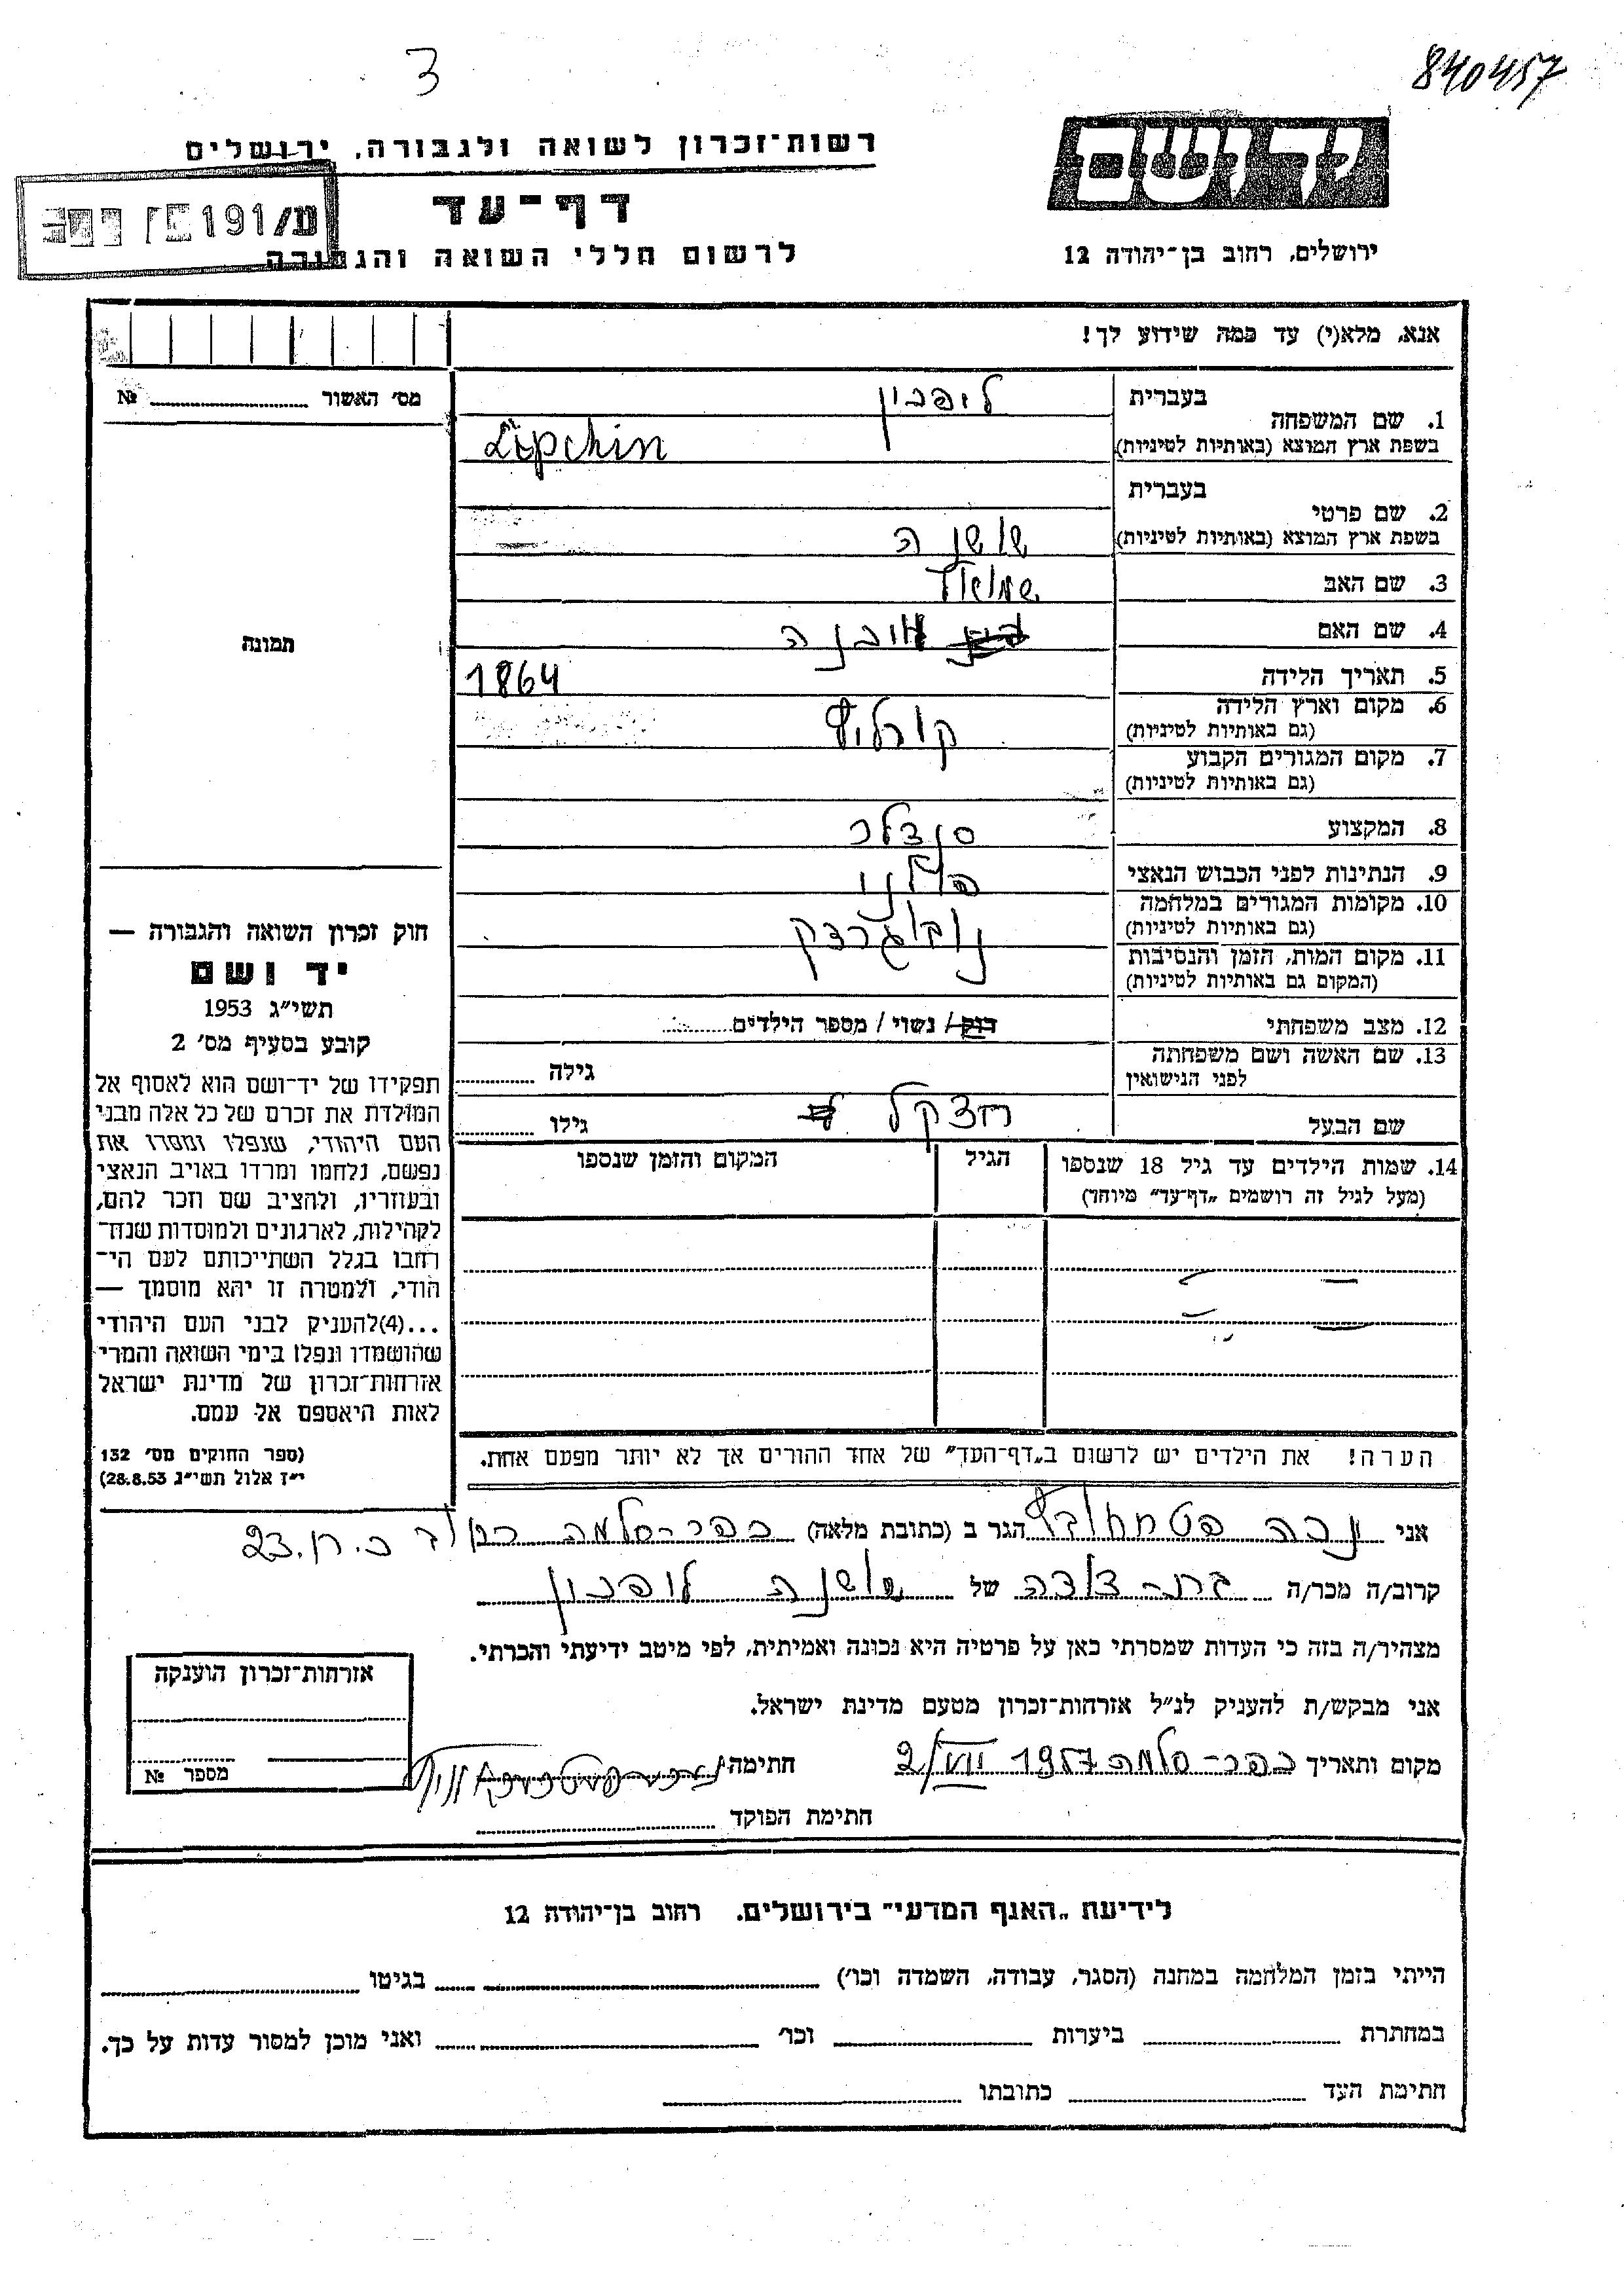 3
840457
יד ושם
רשות־זכרון לשואה ולגבורה, ירושלים
דף־עד
191/מ
לרשום חללי השואה והגבורה
ירושלים, רחוב בן־יהודה 12
אנא, מלא(י) עד כמה שידוע לך!
מס' האשור № 
1. שם המשפחה
בעברית ליפכין
בשפת ארץ המוצא (באותיות לטיניות) Lipchin
2. שם פרטי
בעברית
בשפת ארץ המוצא (באותיות לטיניות) שושנה
3. שם האב שמואל
4. שם האם
5. תאריך הלידה 1864
6. מקום וארץ הלידה
(גם באותיות לטיניות) קורליץ
7. מקום המגורים הקבוע
(גם באותיות לטיניות)
8. המקצוע סנדלר
9. הנתינות לפני הכבוש הנאצי פולני
10. מקומות המגורים במלחמה
(גם באותיות לטיניות) נובוגרדק
11. מקום המות, הזמן והנסיבות
(המקום גם באותיות לטיניות)
12. מצב משפחתי רוק / נשוי / מספר הילדים
13. שם האשה ושם משפחתה
לפני הנישואין גילה
שם הבעל חצקל גילו
14. שמות הילדים עד גיל 18 שנספו
(מעל לגיל זה רושמים „דף־עד" מיוחד)
הגיל
המקום והזמן שנספו
הערה! את הילדים יש לרשום ב„דף־העד" של אחד ההורים אך לא יותר מפעם אחת.
תמונה
חוק זכרון השואה והגבורה —
יד ושם
תשי"ג 1953
קובע בסעיף מס' 2
תפקידו של יד־ושם הוא לאסוף אל
המולדת את זכרם של כל אלה מבני
העם היהודי, שנפלו ומסרו את
נפשם, נלחמו ומרדו באויב הנאצי
ובעוזריו, ולהציב שם וזכר להם,
לקהילות, לארגונים ולמוסדות שנח־
רבו בגלל השתייכותם לעם הי־
הודי, ולמטרה זו יהא מוסמך —
...(4)להעניק לבני העם היהודי
שהושמדו ונפלו בימי השואה והמרי
אזרחות־זכרון של מדינת ישראל
לאות היאספם אל עמם.
(ספר החוקים מס' 132
י"ז אלול תשי"ג 28.8.53)
אני הגר ב (כתובת מלאה) כפר-סלמה 23
קרוב/ה מכר/ה בת-דודה של שושנה ליפכין
מצהיר/ה בזה כי העדות שמסרתי כאן על פרטיה היא נכונה ואמיתית, לפי מיטב ידיעתי והכרתי.
אני מבקש/ת להעניק לנ"ל אזרחות־זכרון מטעם מדינת ישראל.
מקום ותאריך כפר-סלמה 2/VII 1957 חתימה
חתימת הפוקד
אזרחות־זכרון הוענקה
מספר №
לידיעת „האגף המדעי" בירושלים, רחוב בן־יהודה 12
הייתי בזמן המלחמה במחנה (הסגר, עבודה, השמדה וכו') בגיטו
במחתרת ביערות וכו' ואני מוכן למסור עדות על כך.
חתימת העד כתובתו